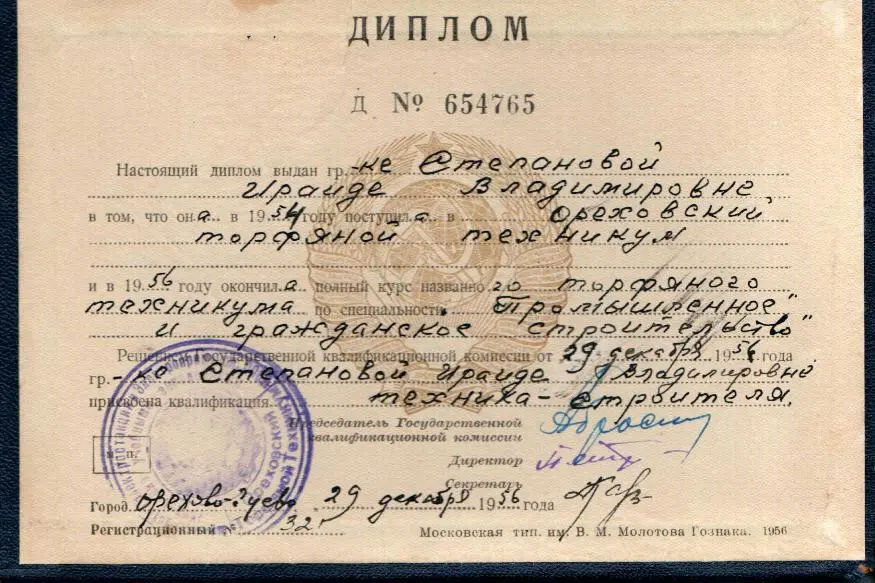 ДИПЛОМ
Д № 654765
Настоящий диплом выдан гр.-ке Степановой
Ираиде Владимировне
в том, что она в 1954 году поступила в Ореховский
торфяной техникум
и в 1956 году окончила полный курс названного торфяного
техникума по специальности "Промышленное
и гражданское строительство"
Решением Государственной квалификационной комиссии от 29 декабря 1956 года
гр.-ке Степановой Ираиде Владимировне
присвоена квалификация техника-строителя.
Председатель Государственной
квалификационной комиссии
Директор
Секретарь
м. п.
Город Орехово-Зуево 29 декабря 1956 года
Регистрационный № 32
Московская тип. им. В. М. Молотова Гознака. 1956